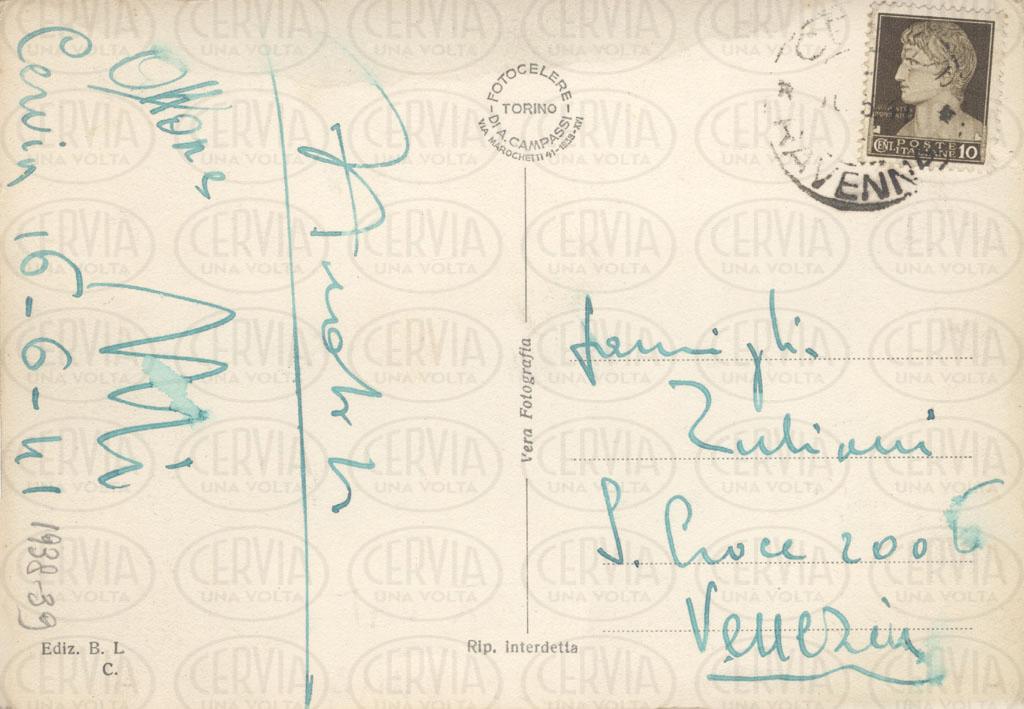 Cervia 16-6-41
1938-39
FOTOCELERE
TORINO
DI A. CAMPASSI
VIA MAROCHETTI 41-1938-XVI
Vera Fotografia
Ediz. B. L
C.
Rip. interdetta
RAVENNA
POSTE
CENT. ITALIANE 10
famiglia
Zuliani
S. Croce 2006
Venezia
CERVIA
UNA VOLTA